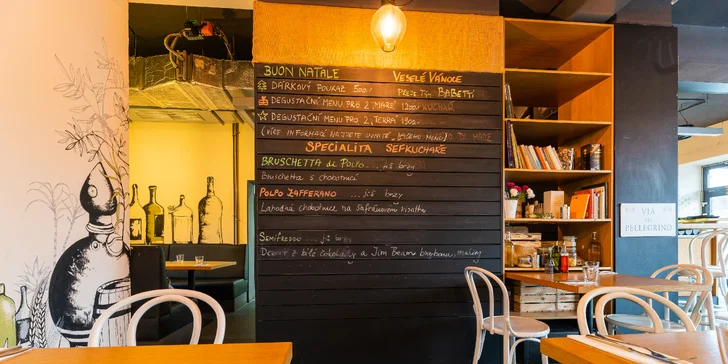 BUON NATALE
VESELÉ VÁNOCE
DÁRKOVÝ POUKAZ 500,-
PŘEJE TÝM BABETTI
DEGUSTAČNÍ MENU PRO 2, MARE 1200,-
DEGUSTAČNÍ MENU PRO 2, TERRA
(VÍCE INFORMACÍ NAJDETE UVNITŘ, MENU)
SPECIALITA ŠÉFKUCHAŘE
BRUSCHETTA di POLPO ... již brzy
Bruschetta s chobotnicí
POLPO ZAFFERANO ... již brzy
Lahodná chobotnice na šafránovém
SEMIFREDDO ... již brzy
Dezert z bílé čokolády a Jim Beam bourbonu, maliny
VIA
DEL
PELLEGRINO